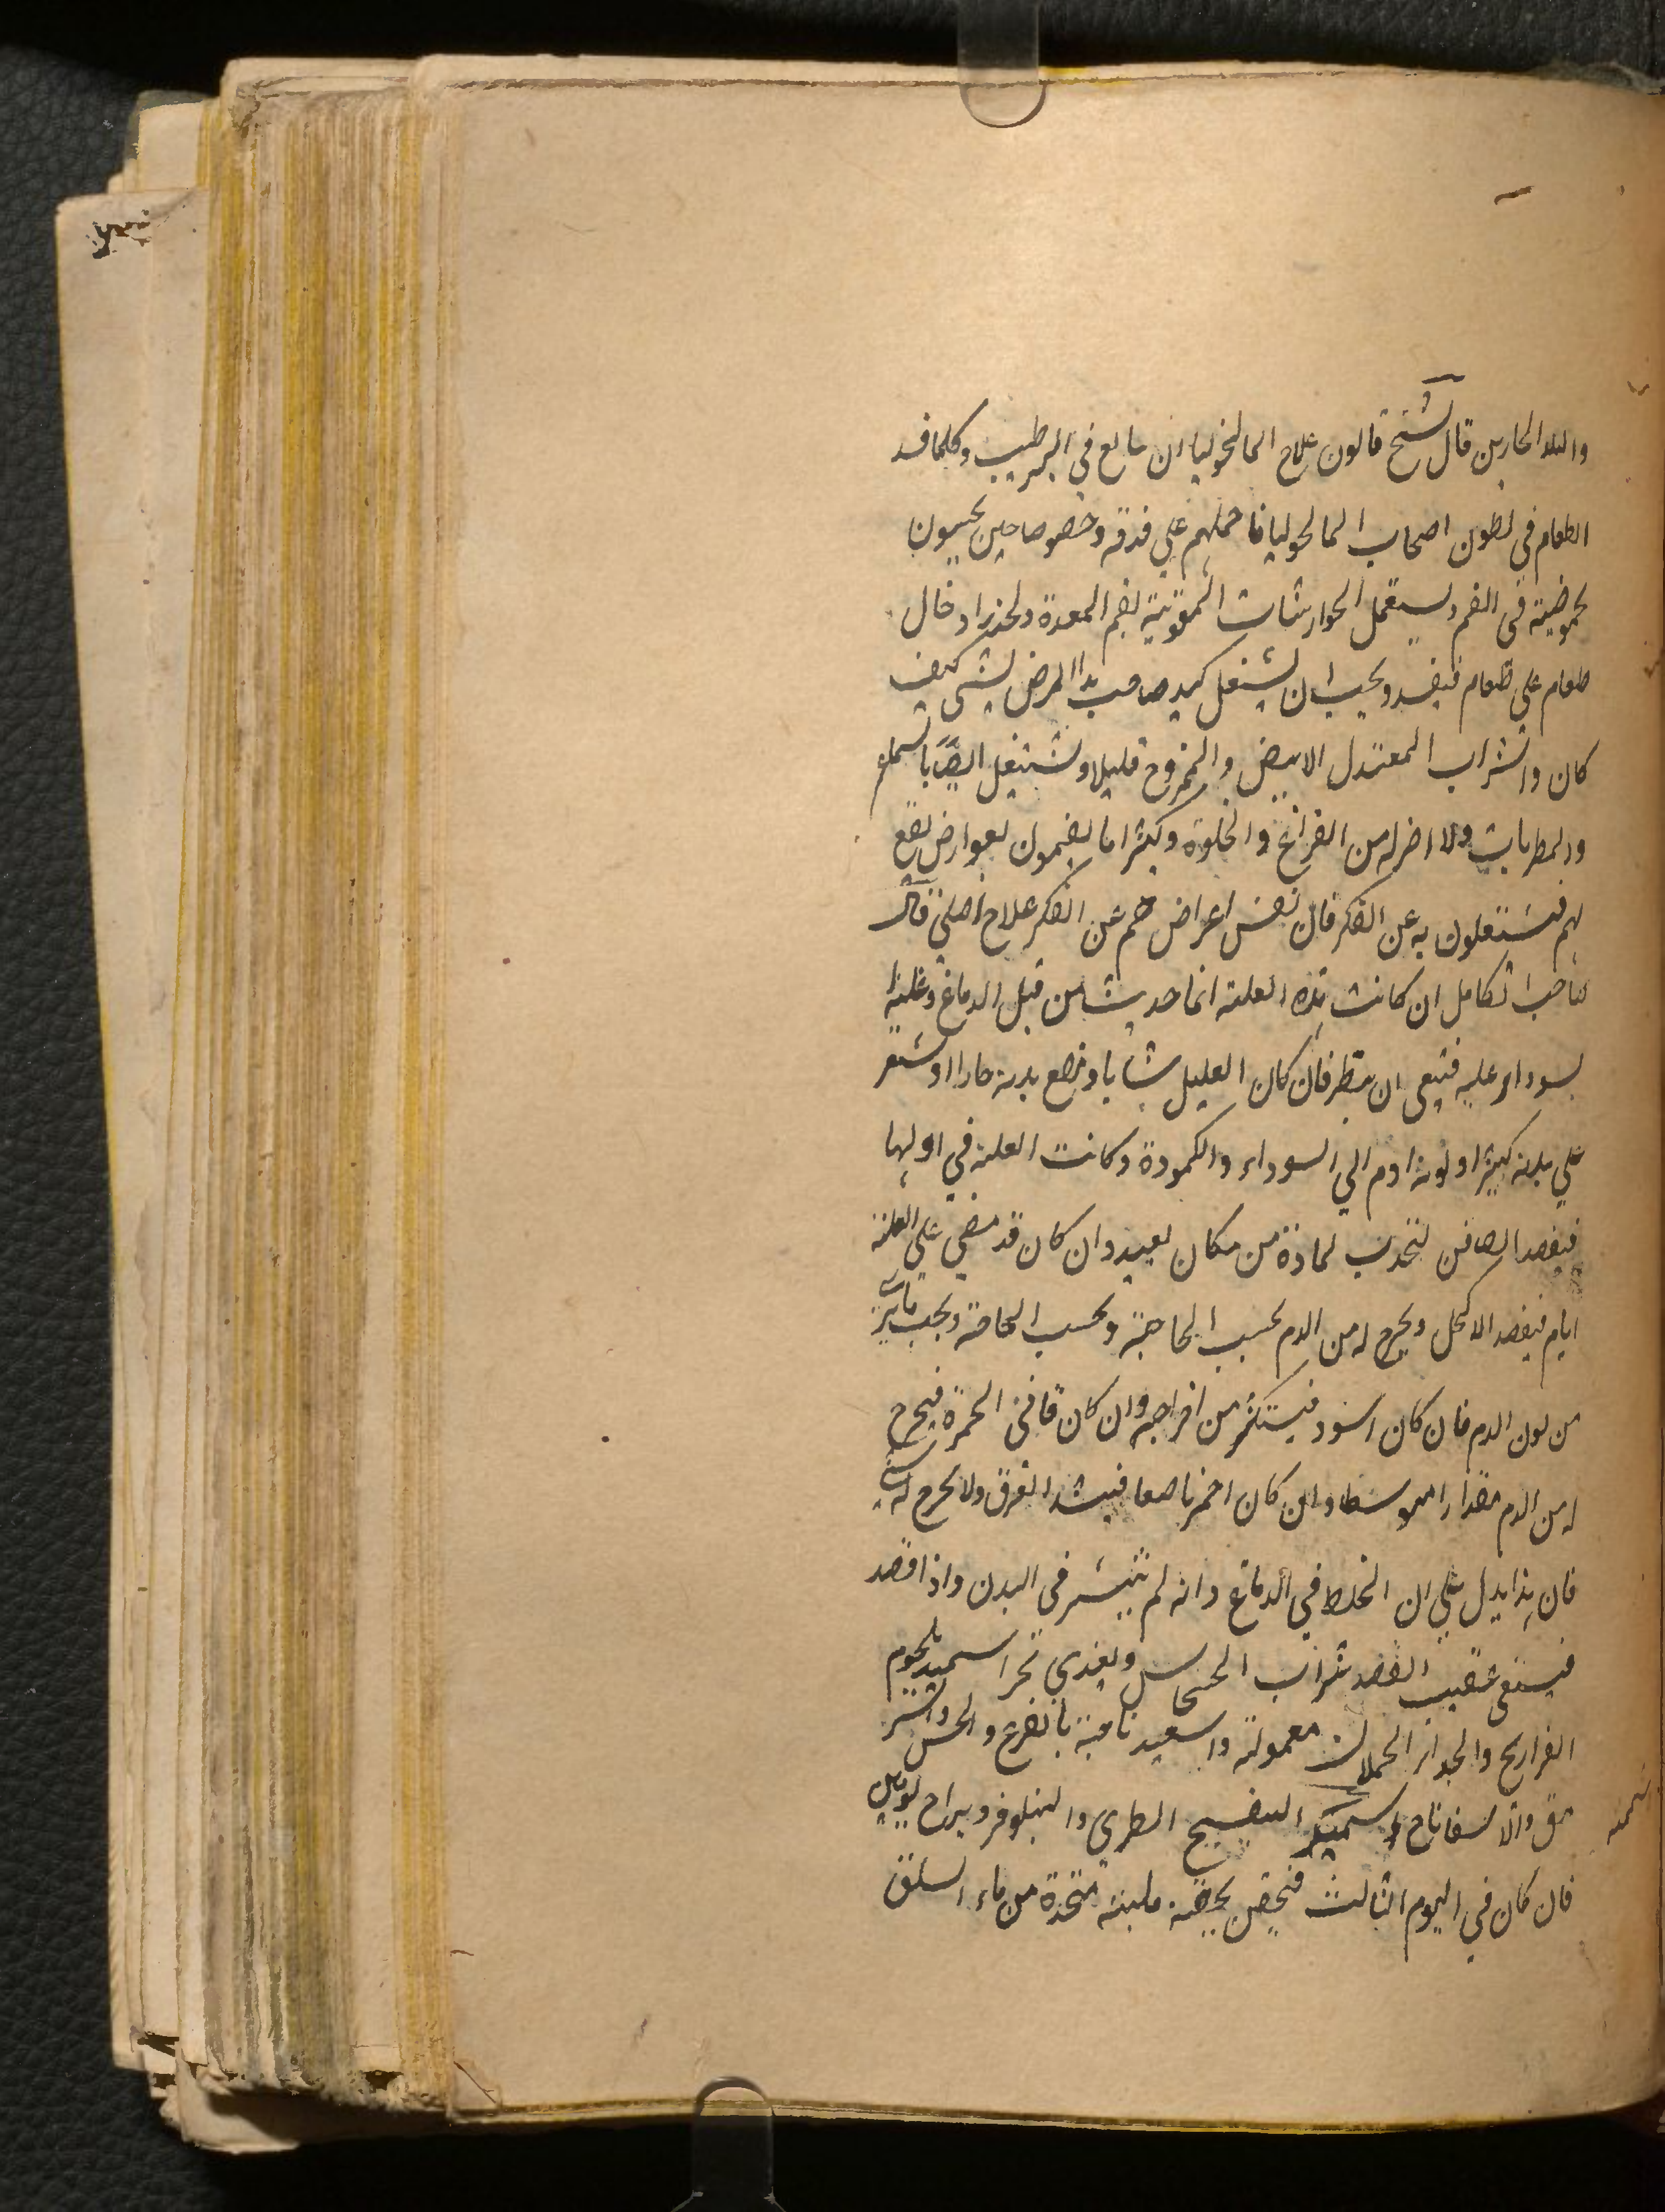 والبلد الحارين قال الشيخ قانون علاج المالنخوليا ان يبالغ في الترطيب وكلما فسد
الطعام في بطون اصحاب المالنخوليا فاحملهم علي قذفه وخصوصا حين يحسون
بحموضة في الفم ويستعمل الجوارشنات المقوية لفم المعدة وليحذر ادخال
طعام علي طعام فيفسد ويجب ان يشتغل كيد صاحب هذا المرض بشي كيف
كان والشراب المعتدل الابيض والممزوج قليلا ويشتغل ايضا بالسماع
والمطربات ولا اضر له من الفراغ والخلوة وكثيرا ما يغتمون لعوارض تقع
لهم فيشتغلون به عن الفكر فان نفس اعراضهم عن الفكر علاج اصلي قال
صاحب الكامل ان كانت هذه العلة انما حدثت من قبل الدماغ وغلبة
السوداء عليه فينبغي ان ينظر فان كان العليل شابا وموضع بدنه حارا او الشعر
علي بدنه كثيرا ولونه ادم الي السوداء والكمودة وكانت العلة في اولها
فيفصد الصافن لتجذب المادة من مكان بعيد وان كان قد مضي علي العلة
ايام فيفصد الاكحل ويخرج له من الدم بحسب الحاجة وبحسب الحاجة ويجب ما يري
من لون الدم فان كان اسود فيستكثر من اخراجه وان كان قاني الحمرة فيخرج
له من الدم مقدارا متوسطا وان كان احمر ناصعا فيشد العرق ولا يخرج له شي
فان هذا يدل علي ان الخلط في الدماغ وانه لم ينتشر في البدن واذا فصد
فيسقي عقيب الفصد شراب الخشخاش ويغذي بخبز السميد بلحوم
الفراريج والجداء الحملان معمولة واسفيدباجة بالقرع والخس والسر
مق والاسفاناخ السميد البنفسج الطري والنيلوفر ويراح يومين
فان كان في اليوم الثالث فيحقن بحقنة ملينة متخذة من ماء السلق